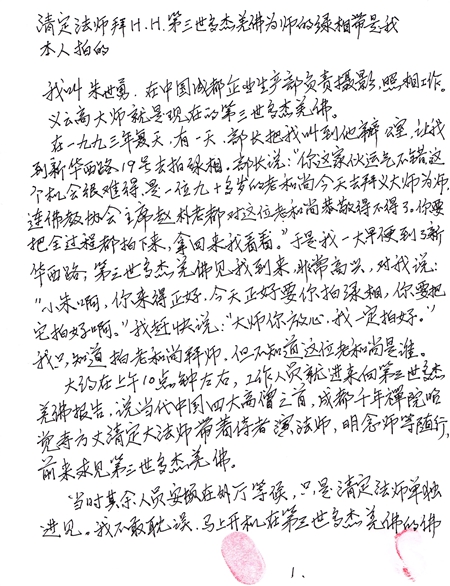 清定法师拜H.H.第三世多杰羌佛为师的录相带是我
本人拍的
我叫朱世勇，在中国成都企业生产部负责摄影、照相工作。
义云高大师就是现在的第三世多杰羌佛。
在一九九三年夏天，有一天，部长把我叫到他辦公室，让我
到新华西路19号去拍录相，部长说：“你这家伙运气不错，这
个机会很难得，是一位九十多岁的老和尚今天去拜义大师为师，
连佛教协会主席赵朴老都对这位老和尚恭敬得不得了，你要
把全过程都拍下来，拿回来我看看。”于是我一大早便到了新
华西路，第三世多杰羌佛见我到来，非常高兴，对我说：
“小朱啊，你来得正好，今天正好要你拍录相，你要把
它拍好啊。”我赶快说：“大师你放心，我一定拍好。”
我只知道拍老和尚拜师，但不知道这位老和尚是谁。
大约在上午10点钟左右，工作人员就进来向第三世多杰
羌佛报告，说当代中国四大高僧之首，成都千年禅院昭
觉寺方丈清定大法师带着侍者演法师，明念师等随行，
前来求见第三世多杰羌佛。
当时其余人员安坂在外厅等候，只是清定法师单独
进见。我不敢耽误，马上开机在第三世多杰羌佛的佛
1.